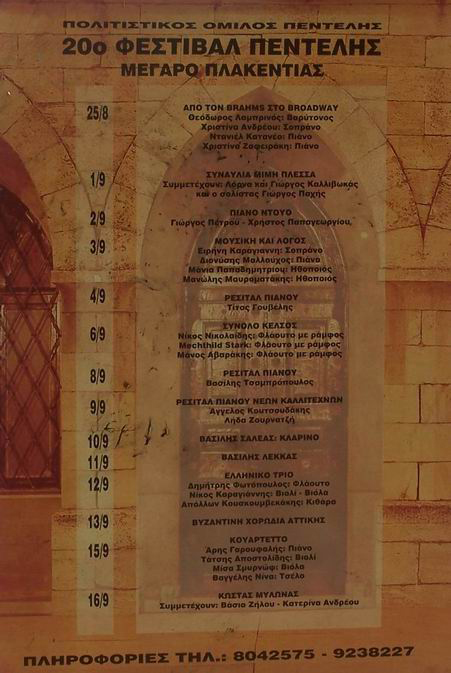 ΠΟΛΙΤΙΣΤΙΚΟΣ ΟΜΙΛΟΣ ΠΕΝΤΕΛΗΣ
20ο ΦΕΣΤΙΒΑΛ ΠΕΝΤΕΛΗΣ
ΜΕΓΑΡΟ ΠΛΑΚΕΝΤΙΑΣ
25/8 ΑΠΟ ΤΟΝ BRAHMS ΣΤΟ BROADWAY
Θεόδωρος Λαμπρινός: Βαρύτονος
Χριστίνα Ανδρέου: Σοπράνο
Ντανιέλ Κατανέο: Πιάνο
Χριστίνα Ζαφειράκη: Πιάνο
1/9 ΣΥΝΑΥΛΙΑ ΜΙΜΗ ΠΛΕΣΣΑ
Συμμετέχουν: Λόρνα και Γιώργος Καλλιβωκάς
και ο σολίστας Γιώργος Παχής
2/9 ΠΙΑΝΟ ΝΤΟΥΟ
Γιώργος Πέτρου - Χρήστος Παπαγεωργίου
3/9 ΜΟΥΣΙΚΗ ΚΑΙ ΛΟΓΟΣ
Ειρήνη Καράγιαννη: Σοπράνο
Διονύσης Μαλλούχος: Πιάνο
Μάνια Παπαδημητρίου: Ηθοποιός
Μανώλης Μαυροματάκης: Ηθοποιός
4/9 ΡΕΣΙΤΑΛ ΠΙΑΝΟΥ
Τίτος Γουβέλης
6/9 ΣΥΝΟΛΟ ΚΕΛΣΟΣ
Νίκος Νικολαΐδης: Φλάουτο με ράμφος
Mechthild Stark: Φλάουτο με ράμφος
Μάνος Αβαράκης: Φλάουτο με ράμφος
8/9 ΡΕΣΙΤΑΛ ΠΙΑΝΟΥ
Βασίλης Τσαμπρόπουλος
9/9 ΡΕΣΙΤΑΛ ΠΙΑΝΟΥ ΝΕΩΝ ΚΑΛΛΙΤΕΧΝΩΝ
Άγγελος Κουτσουδάκης
Λήδα Ζουρνατζή
10/9 ΒΑΣΙΛΗΣ ΣΑΛΕΑΣ: ΚΛΑΡΙΝΟ
11/9 ΒΑΣΙΛΗΣ ΛΕΚΚΑΣ
12/9 ΕΛΛΗΝΙΚΟ ΤΡΙΟ
Δημήτρης Φωτόπουλος: Φλάουτο
Νίκος Καραγιάννης: Βιολί - Βιόλα
Απόλλων Κουσκουμβεκάκης: Κιθάρα
13/9 ΒΥΖΑΝΤΙΝΗ ΧΟΡΩΔΙΑ ΑΤΤΙΚΗΣ
15/9 ΚΟΥΑΡΤΕΤΤΟ
Άρης Γαρουφαλής: Πιάνο
Τάτσης Αποστολίδης: Βιολί
Μίσα Σμυρνώφ: Βιόλα
Βαγγέλης Νίνα: Τσέλο
16/9 ΚΩΣΤΑΣ ΜΥΛΩΝΑΣ
Συμμετέχουν: Βάσια Ζήλου - Κατερίνα Ανδρέου
ΠΛΗΡΟΦΟΡΙΕΣ ΤΗΛ.: 8042575 - 9238227